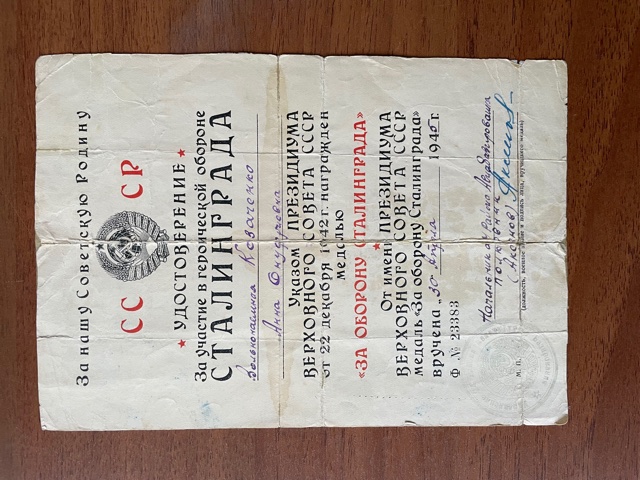 За нашу Советскую Родину
СС СР
УДОСТОВЕРЕНИЕ
За участие в героической обороне
СТАЛИНГРАДА
Вольнонаемная Козаченко
Анна
Указом ПРЕЗИДИУМА
ВЕРХОВНОГО СОВЕТА СССР
от 22 декабря 1942 г. награжден
медалью
«ЗА ОБОРОНУ СТАЛИНГРАДА»
От имени ПРЕЗИДИУМА
ВЕРХОВНОГО СОВЕТА СССР
медаль «За оборону Сталинграда»
вручена „30 194 г.
Ф № 23383
Начальник Района Авиабазирования
полковник
(должность, военное звание и подпись лица, вручившего медаль)
М. П.